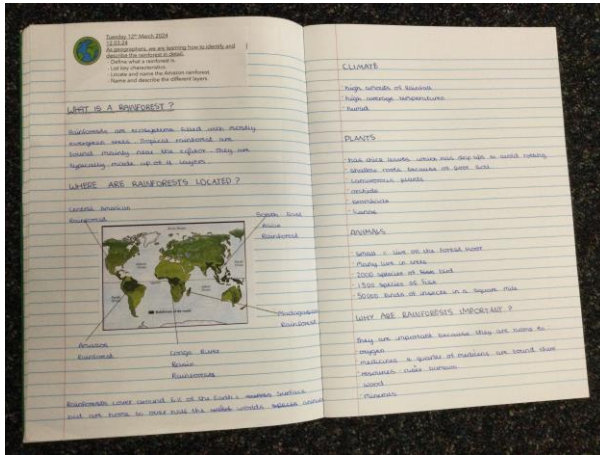 Tuesday 12th March 2024
12.03.24
As geographers, we are learning how to identify and
describe the rainforest in detail.
- Define what a rainforest is.
- List key characteristics.
- Locate and name the Amazon rainforest.
- Name and describe the different layers.
WHAT IS A RAINFOREST?
Rainforests are ecosystems filled with mostly
evergreen trees. Tropical rainforest are
found mainly near the equator. They are
typically made up of 4 layers
WHERE ARE RAINFORESTS LOCATED?
Central American
Rainforest
South East
Asia
Rainforest
Madagascan
Rainforest
Amazon
Rainforest
Congo River
Basin
Rainforest
Rainforests cover around 6% of the Earth's surface
but are home to over half the worlds species
CLIMATE
high amounts of rainfall
high average temperatures
humid
PLANTS
has thick leaves which has drip tips to avoid rotting
shallow roots because of poor soil
carnivorous plants
orchids
bromeliads
lianas
ANIMALS
small = live on the forest floor
Many live in trees
2000 species of bird
1500 species of fish
50000 kinds of insects in a square mile
WHY ARE RAINFORESTS IMPORTANT?
They are important because they are home to
oxygen
medicines a quarter of medicines are found there
resources
wood
minerals